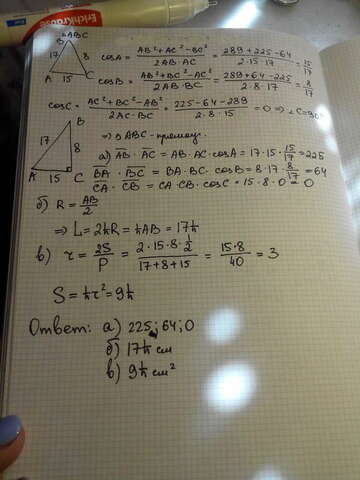 ErichKrause
△ABC
B
17 8
A 15 C
cosA = (AB²+AC²-BC²)/(2AB·AC) = (289+225-64)/(2·15·17) = 15/17
cosB = (AB²+BC²-AC²)/(2AB·BC) = (289+64-225)/(2·8·17) = 8/17
cosC = (AC²+BC²-AB²)/(2AC·BC) = (225-64-289)/(2·8·15) = 0 ⇒ ∠C=90°
B
17 8
A 15 C
⇒ △ABC-прямоуг.
а) AB · AC = AB·AC·cosA = 17·15·15/17 = 225
BA · BC = BA·BC·cosB = 8·17·8/17 = 64
CA · CB = CA·CB·cosC = 15·8·0 = 0
б) R = AB/2
⇒ L = 2πR = πAB = 17π
в) r = 2S/P = (2·15·8·1/2)/(17+8+15) = 15·8/40 = 3
S = πr² = 9π
Ответ: а) 225; 64; 0
б) 17π см
в) 9π см²